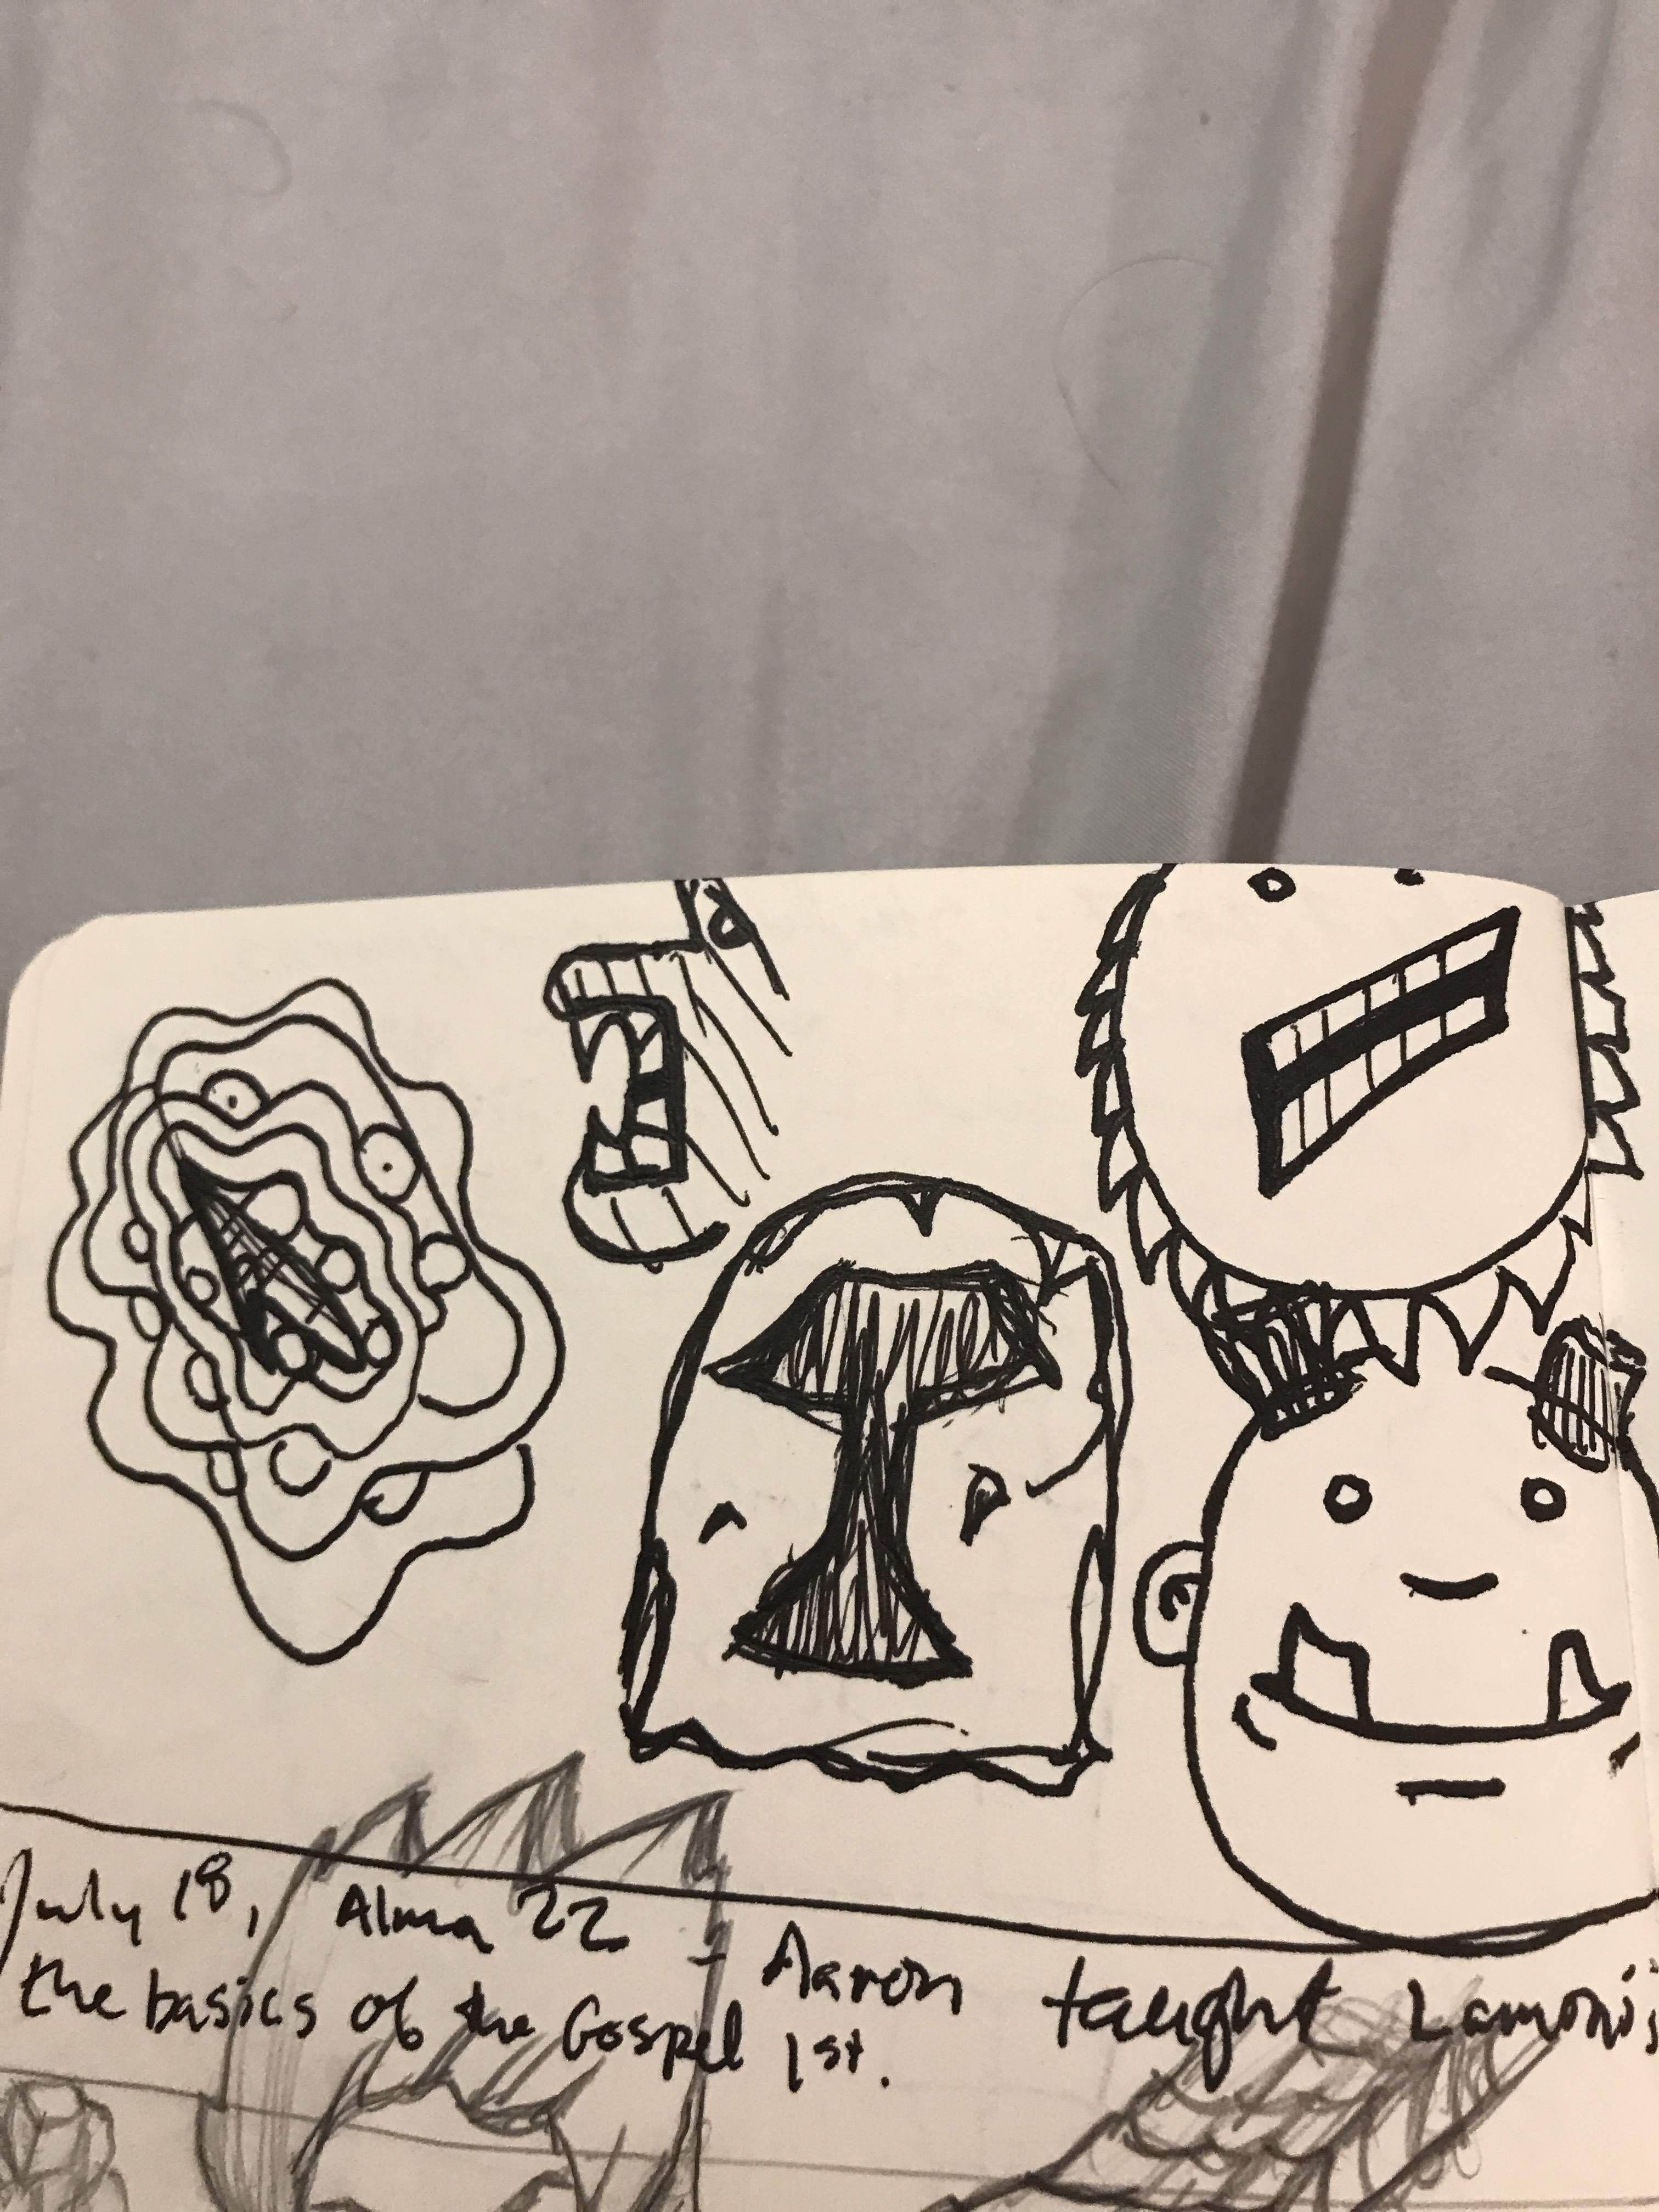 July 18, Alma 22 - Aaron taught Lamoni's
the basics of the Gospel 1st.